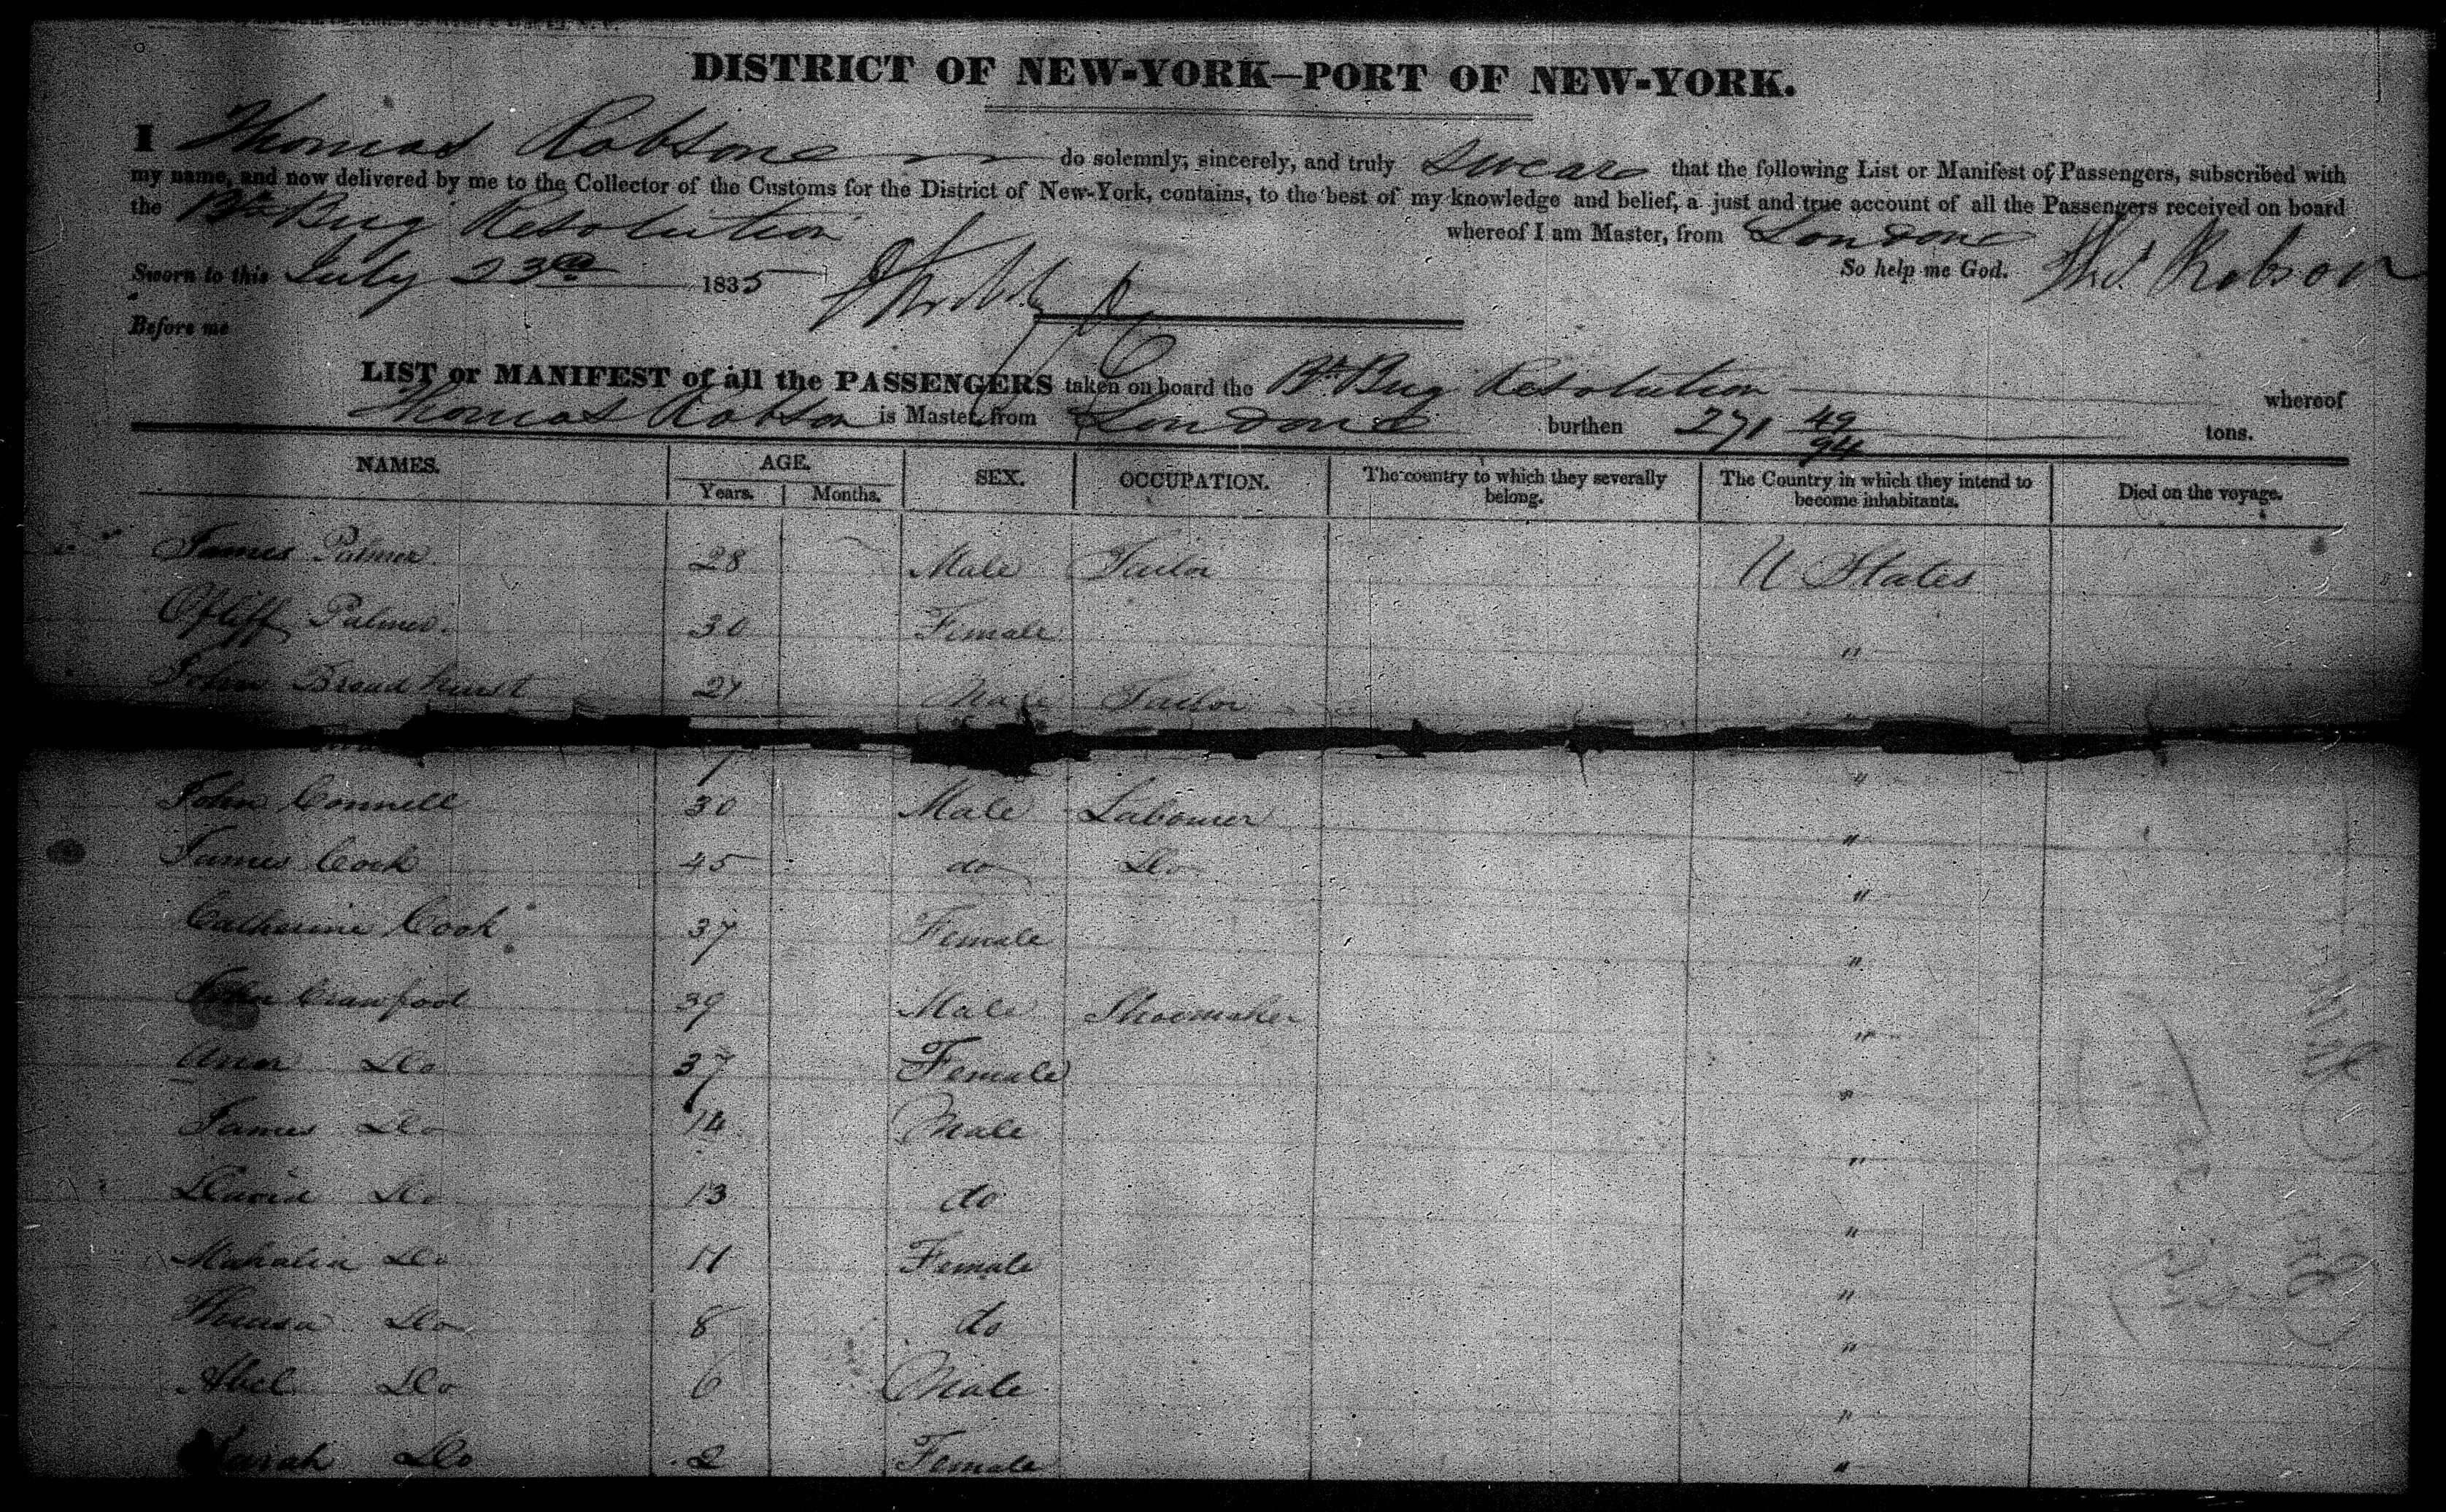 DISTRICT OF NEW-YORK—PORT OF NEW-YORK.
I Thomas Robson do solemnly, sincerely, and truly swear that the following List or Manifest of Passengers, subscribed with
my name, and now delivered by me to the Collector of the Customs for the District of New-York, contains, to the best of my knowledge and belief, a just and true account of all the Passengers received on board
the Bh Brig Resolution whereof I am Master, from London
Sworn to this July 23rd 1835 So help me God. Thos. Robson
Before me
LIST or MANIFEST of all the PASSENGERS taken on board the Bh Brig Resolution whereof
Thomas Robson is Master, from London burthen 271 49/94 tons.
NAMES. AGE. SEX. OCCUPATION. The country to which they severally belong. The Country in which they intend to become inhabitants. Died on the voyage.
Years. Months.
James Palmer 28 Male Tailor U States
Palmer. 30 Female "
John Broadhurst 27 Male Tailor "
"
John Connell 30 Male Labourer "
James Cook 45 do Do "
Catherine Cook 37 Female "
John Crawford 39 Male Shoemaker "
Ann Do 37 Female "
James Do 14 Male "
David Do 13 do "
Mahalia Do 11 Female "
Do 8 do "
Abel Do 6 Male "
Sarah Do 2 Female "